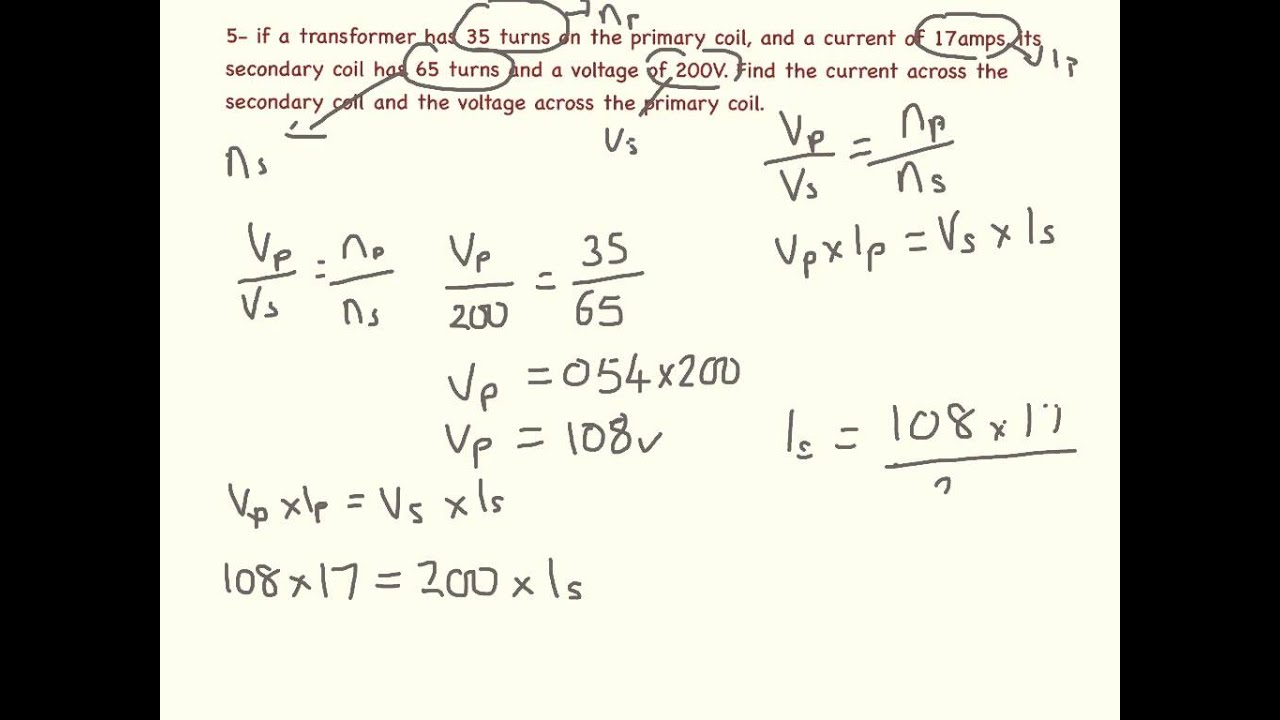 5- if a transformer has 35 turns on the primary coil, and a current of 17amps. Its
secondary coil has 65 turns and a voltage of 200V. Find the current across the
secondary coil and the voltage across the primary coil.
np
Ip
ns
Vs
Vp/Vs = np/ns
Vp x Ip = Vs x Is
Vp/Vs = np/ns
Vp/200 = 35/65
Vp = 054 x 200
Vp = 108v
Is = 108 x 17
Vp x Ip = Vs x Is
108 x 17 = 200 x Is